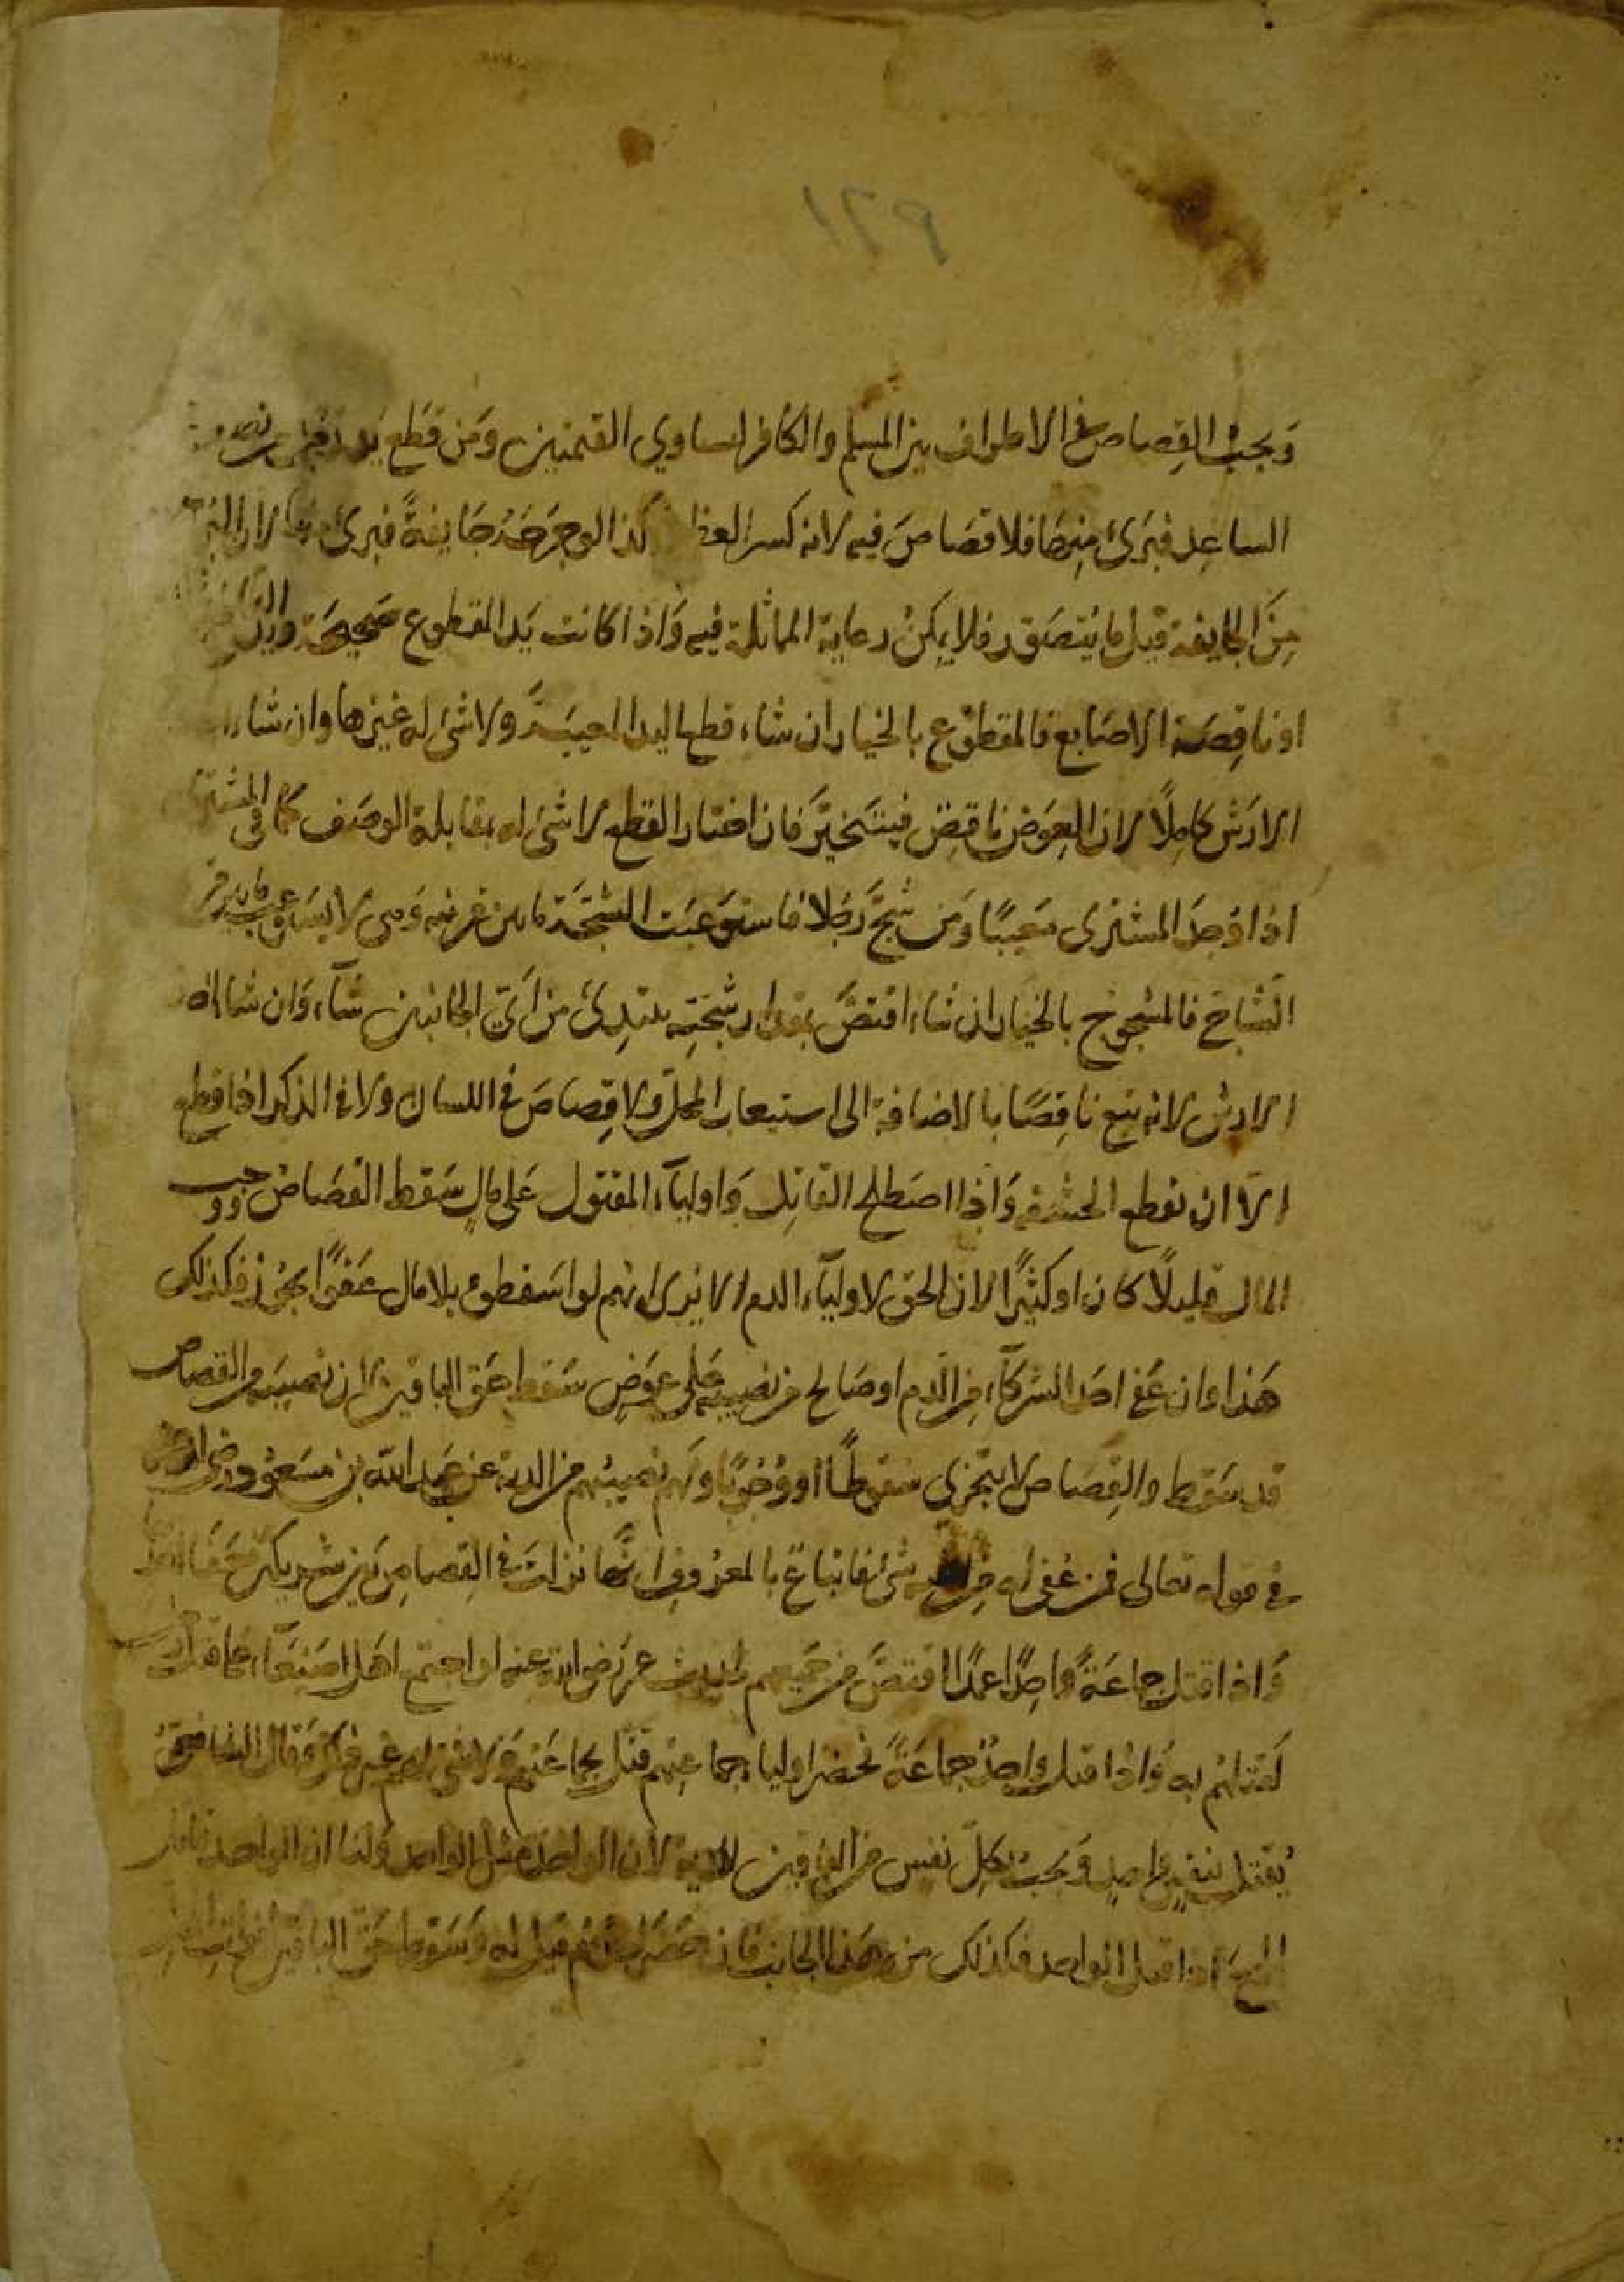 وَيجبُ القِصاص في الاطراف بين المسلم والكافر لتساوي القيمتين ومَن قطَع يد رجل من نصف
الساعِد فبَرئ مِنها فلا قصَاصَ فيه لانه كسر العظم كذا لو جَرَحَهُ جَايفةً فبرئ منها لان البرء
مِنَ الجايفة قبل ما يُتصَوّر فلا يمكنُ رعاية المماثلة فيه وَاذا كانت يَد المقطوع صَحِيحَة ويد
او ناقِصَة الاصَابع فالمقطوع بالخيار ان شاء قطع اليد المعيبَة ولا شئ له غيرها وان شاء
الارَش كامِلاً لان العِوَض ناقِص فيتَخيّرَ فان اختار القطع لا شئ له بمقابلة الوصَف كما في المشتري
اذا وَجَدَ المشتري مَعيبًا وَمَن شجَّ رَجُلا فاستَوعبَت الشجَّة ما بين قرنيه وَهي لا تستَوعب ما بين قرني
الشَّاجّ فالمشجُوج بالخيار ان شاء اقتصَّ بمقدار شجّتِه يبتدِئ من اَيّ الجانبين شآء وَان شاء اخذ
الارش لانه يقع ناقِصًا بالاضافة الى استيعاب المحلّ ولا قِصاصَ في اللسان ولا في الذكر اذا قطع
الاّ ان تقطع الحشفة وَاذا اصَطلح القاتِل وَاوليآء المقتول عَلى مالٍ سَقط القصَاصُ ووجب
المال قليلاً كان او كثيرًا لان الحق لاوليآء الدم الا يرى انهم لو اسَقطوه بلا مال عَفوًا يجوز فكذلك
هَذا وان عَفا احَد الشركآء من الدّم او صَالح من نصيبه عَلى عِوَضٍ سَقط حَق الباقين لان نصيبَه من القصاص
قد سَقط والقِصَاص لا يتجزى سقوطاً او وُجُوبًا ولهم نصيبُهم من الدية عن عَبد الله بن مسَعود رضي الله عنه
في قوله تعالى فمن عُفي له من اخيه شئ فاتباعٌ بالمعرُوف انها نزلت في القِصاصِ بَين شريكين عَفا احدهما
وَاذا قتل جماعَةٌ واحِدًا عمدًا اقتصَّ من جَميعهم لحديث عمر رَضي الله عنه لو اجتمع اهل صَنعآء عَلى قتل
لقتلتُهم به وَاذا قتل واحِدٌ جماعَةً فحضر اوليا جماعتِهم قتل بجماعَتهم وَلا شئ لهم غير ذلك وَقال الشافعي
يُقتل بنفسٍ واحدٍ وَيجبُ بكلّ نفس من الباقين الدية لان الواحد مثل الواحد وَلنا ان الواحد
الجمع اذا قتل الواحد فكذلك من هَذا الجانب فان حَضَر واحِدٌ منهم قتل له وَسَقط حَق الباقين